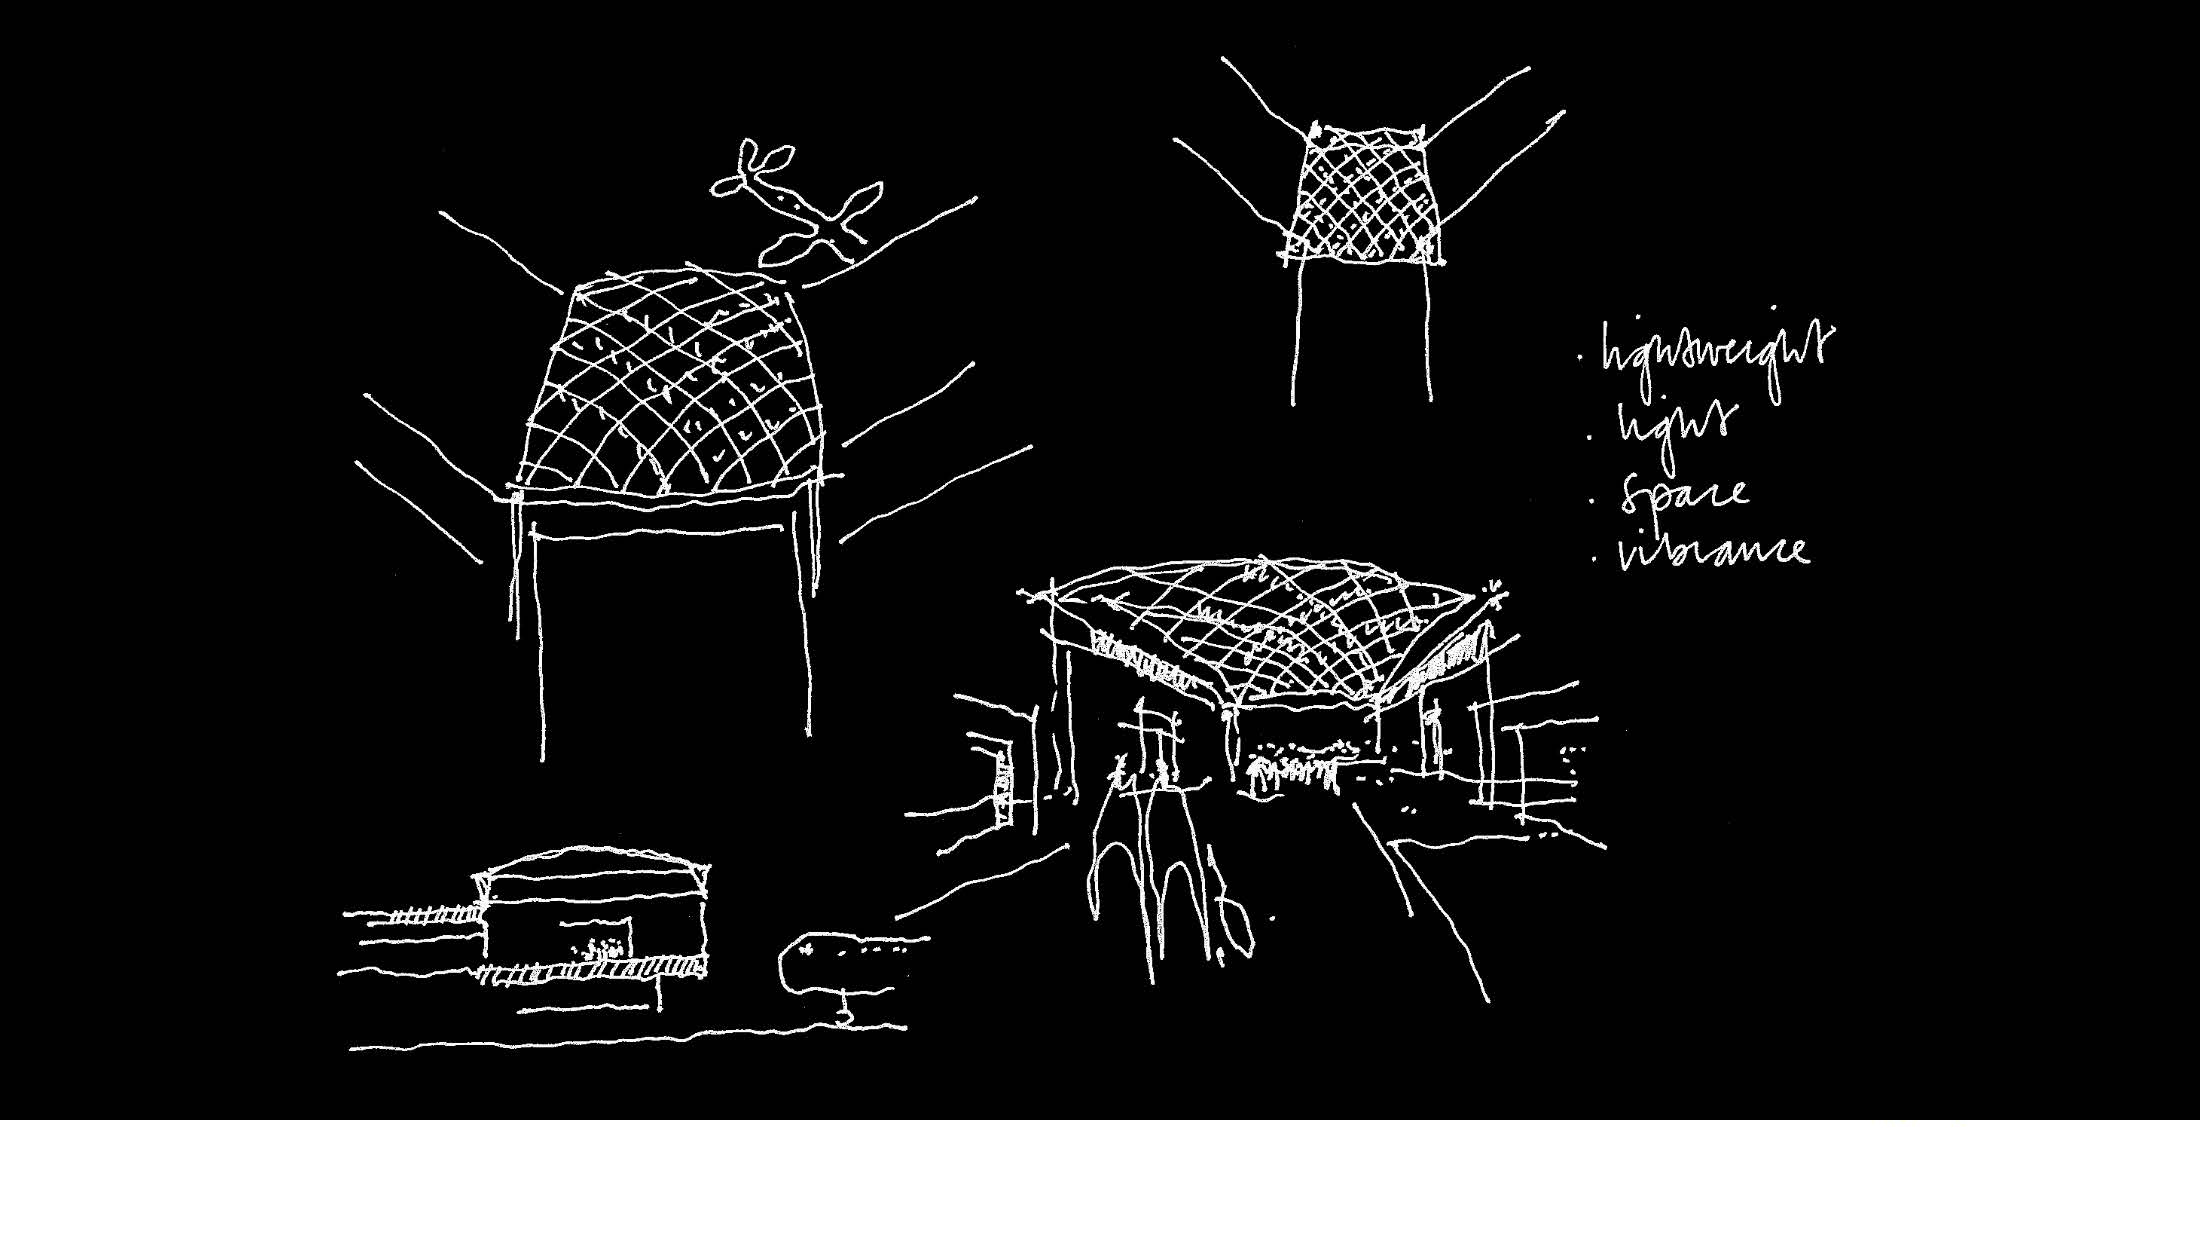 · lightweight
· light
· space
· vibrance